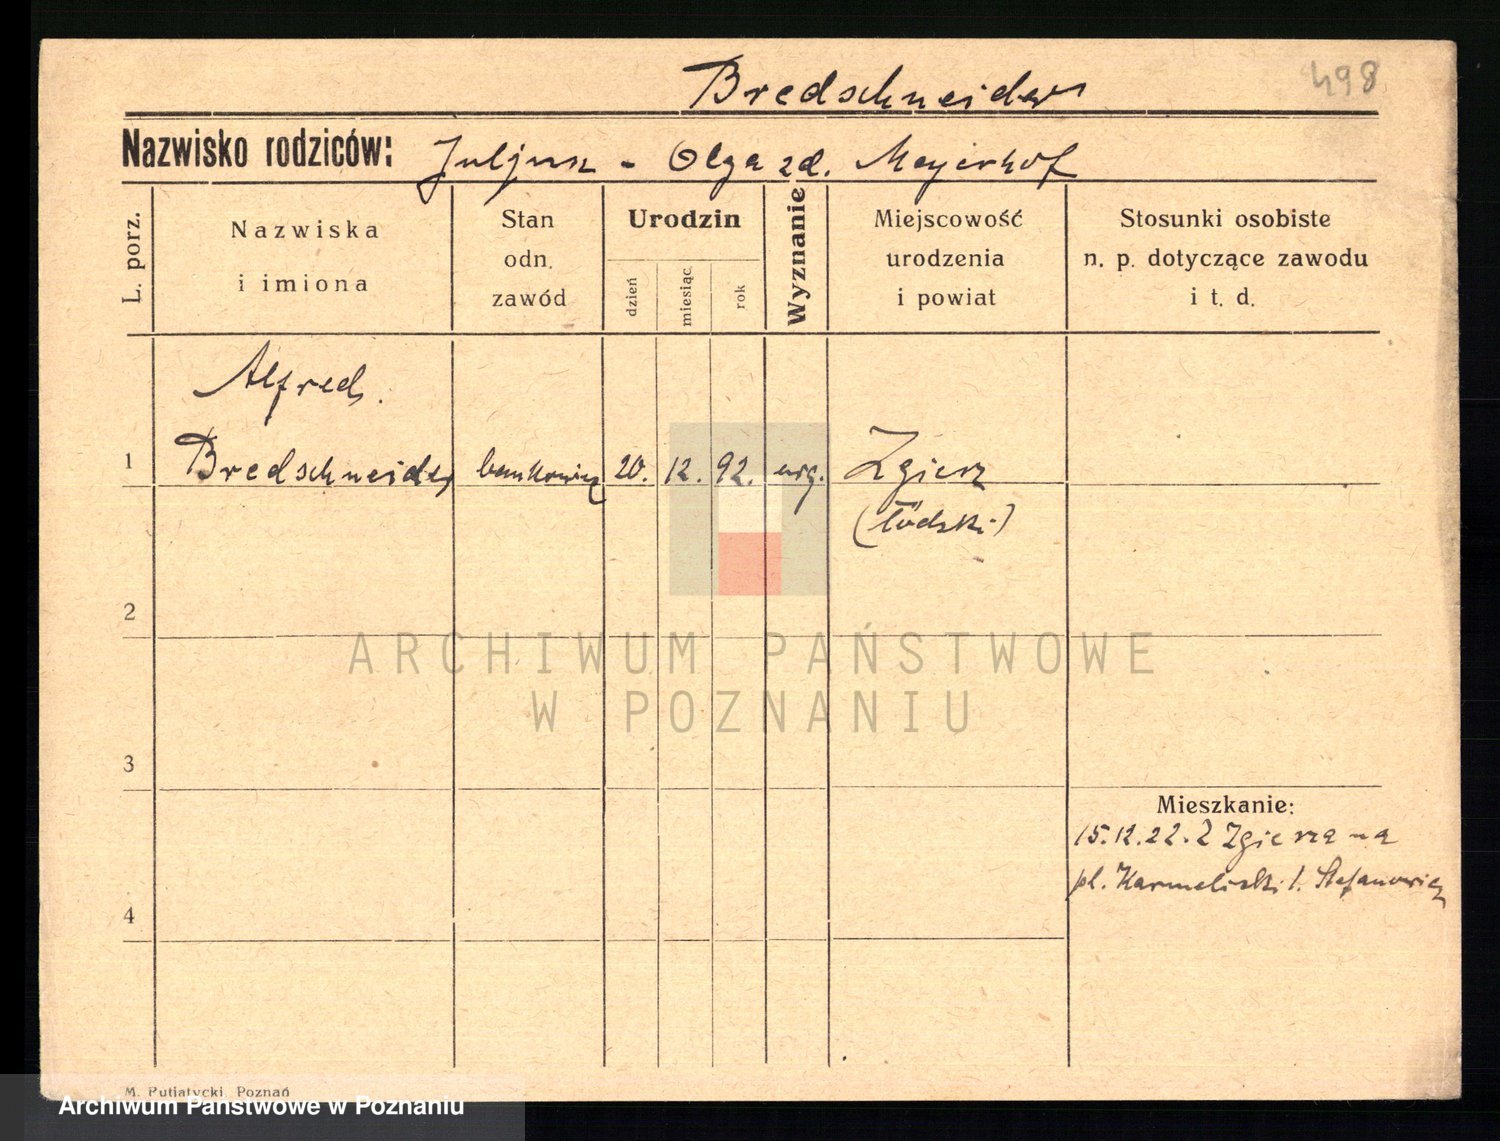 Bredschneider
498
Nazwisko rodziców: Juljusz - Olga zd. Meyerhof
L. porz.
Nazwiska i imiona
Stan odn. zawód
Urodzin
dzień
miesiąc
rok
Wyznanie
Miejscowość urodzenia i powiat
Stosunki osobiste n. p. dotyczące zawodu i t. d.
Alfred.
1 Bredschneider bankowiec 20. 12. 92. Zgierz
(łódzki)
2
ARCHIWUM PAŃSTWOWE
W POZNANIU
3
Mieszkanie:
15.12.22. Z Zgierza na
pl. Karmelicki 1. Stefanowicz
4
M. Putiatycki, Poznań
Archiwum Państwowe w Poznaniu